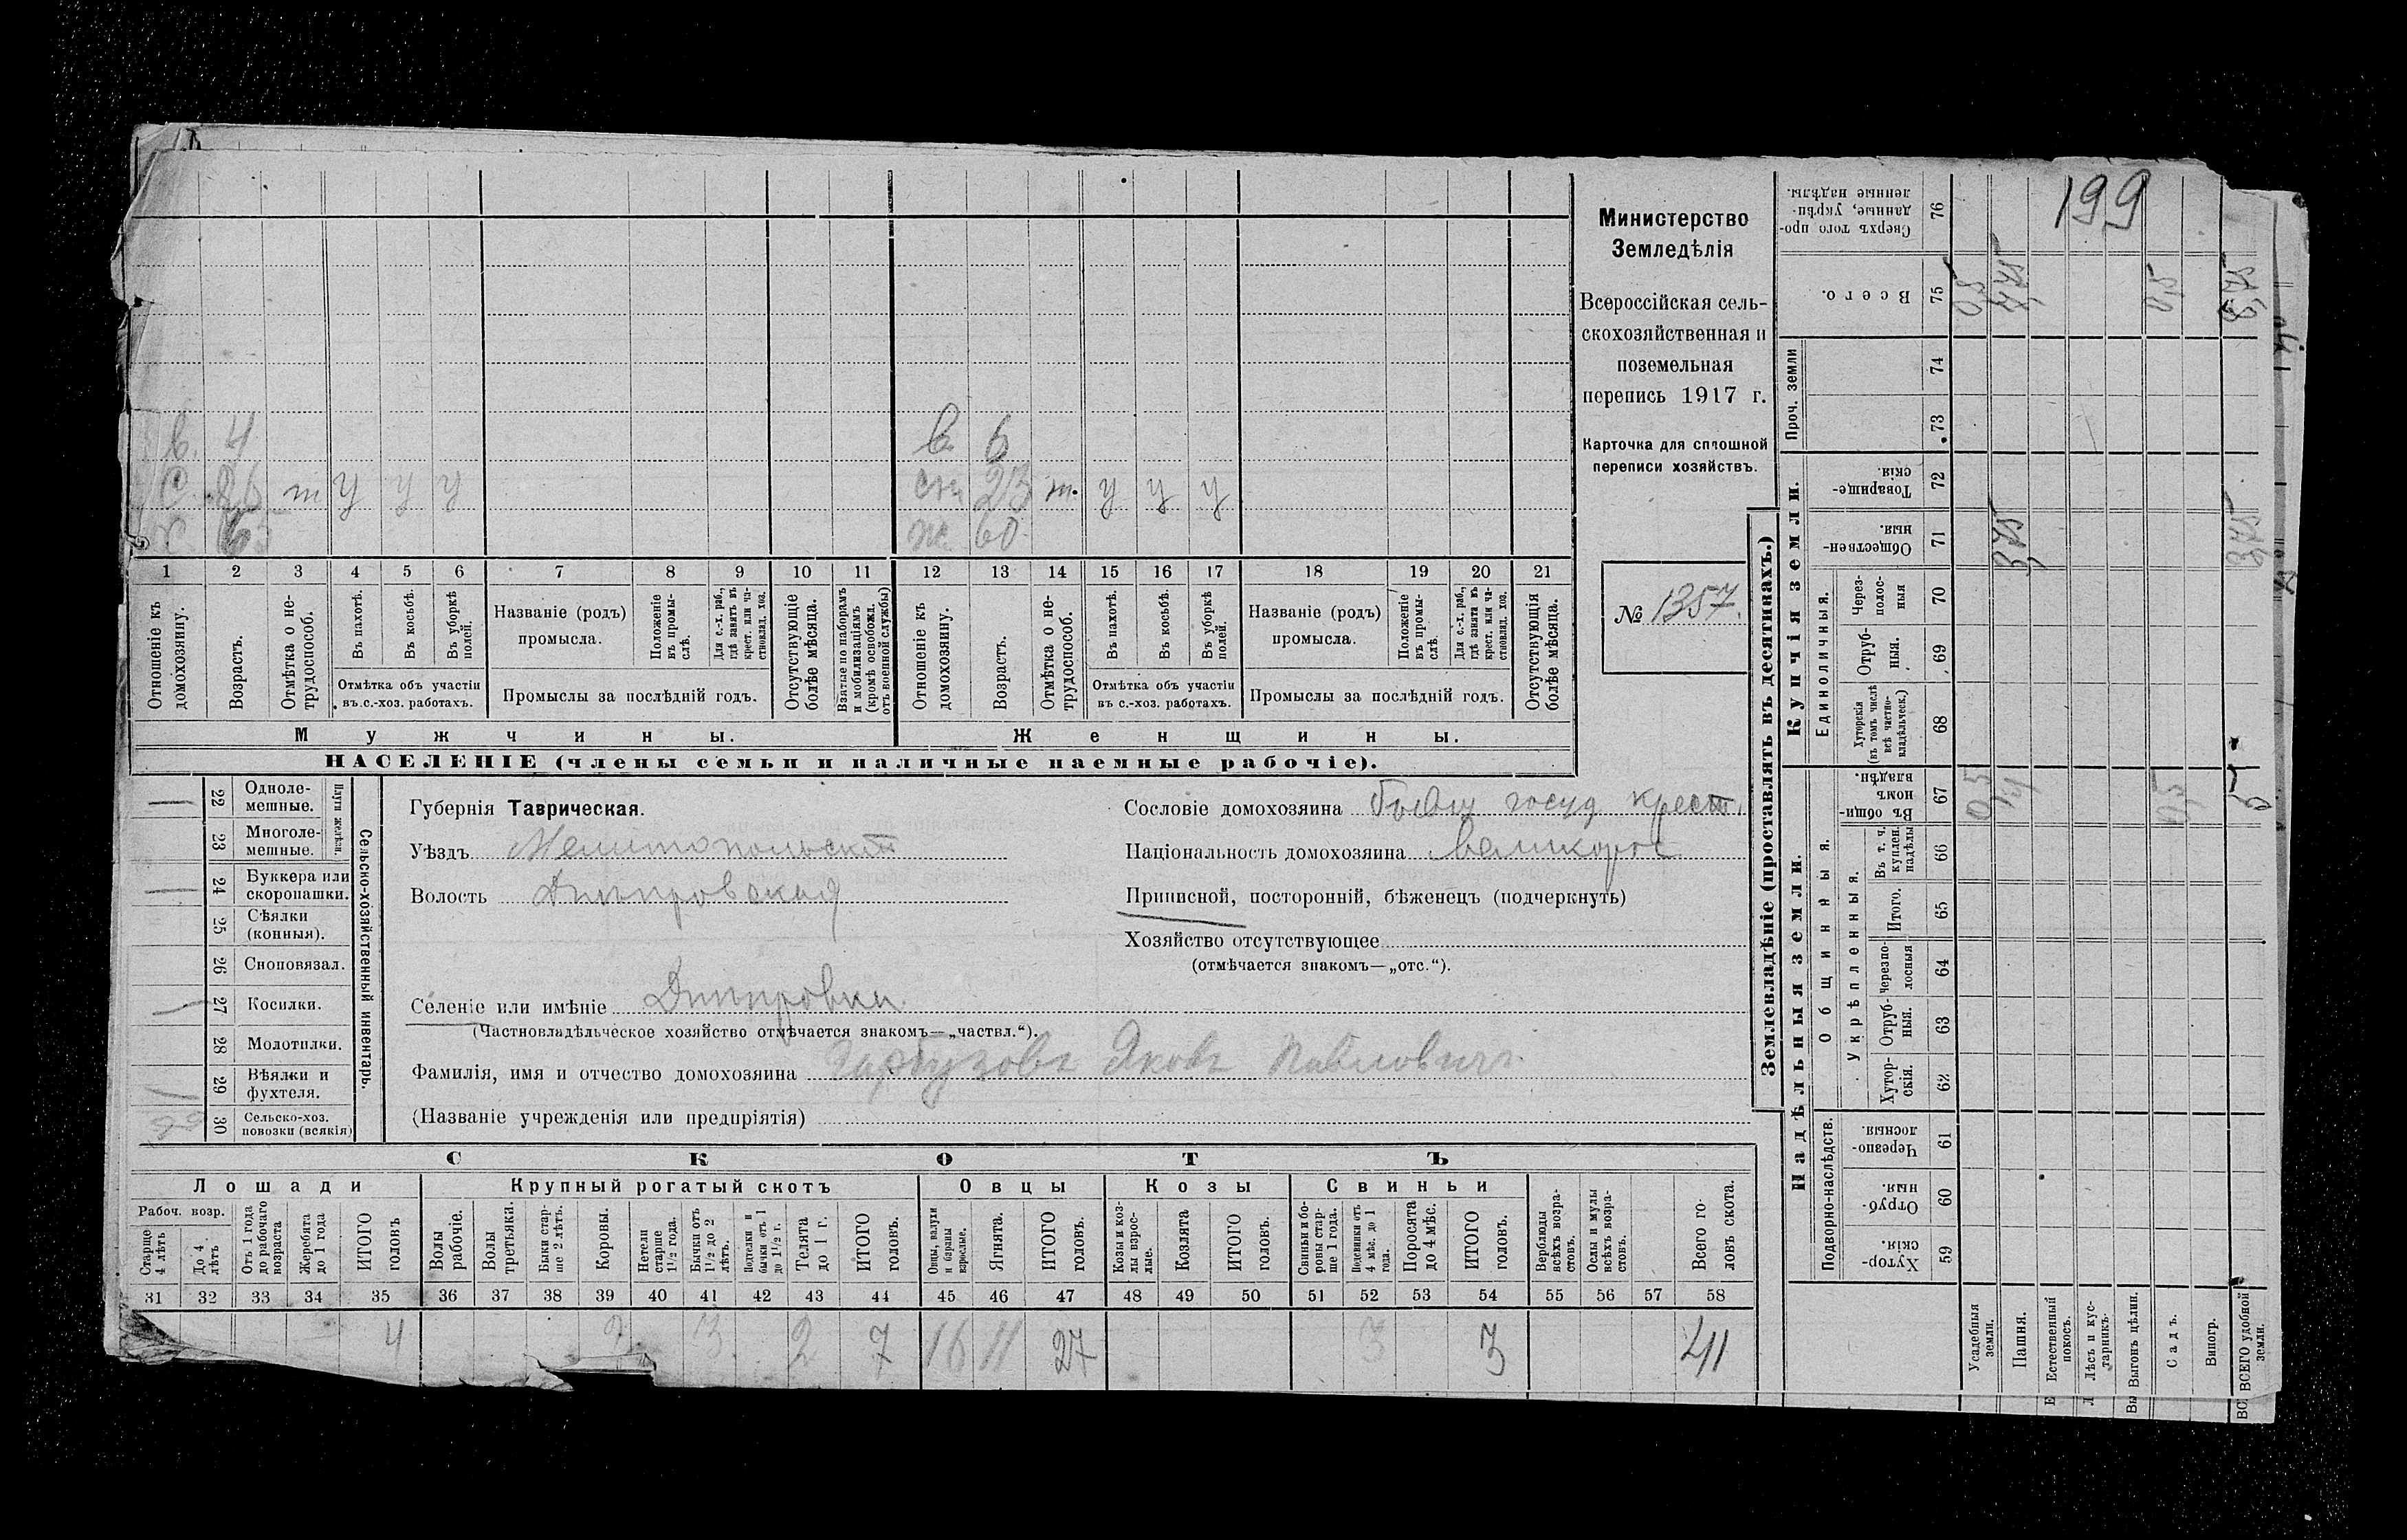 199
Министерство
Земледѣлія
Всероссійская сель-
скохозяйственная и
поземельная
перепись 1917 г.
Карточка для сплошной
переписи хозяйствъ.
№ 1357.
в. 4
в 6
С т у у у
сн 23 т. у у у
ж 60
1 2 3 4 5 6 7 8 9 10 11 12 13 14 15 16 17 18 19 20 21
Отношеніе къ домохозяину.
Возрастъ.
Отмѣтка о не-трудоспособ.
Въ пахотѣ.
Въ косьбѣ.
Въ уборкѣ полей.
Отмѣтка объ участіи въ с.-хоз. работахъ.
Названіе (родъ) промысла.
Положеніе въ промы-слѣ.
Для с.-х. раб., гдѣ занятъ въ крест. или ча-стновлад. хоз.
Промыслы за послѣдній годъ.
Отсутствующіе болѣе мѣсяца.
Взятые по наборамъ и мобилизаціямъ (кромѣ освобожд. отъ военной службы)
Отношеніе къ домохозяину.
Возрастъ.
Отмѣтка о не-трудоспособ.
Въ пахотѣ.
Въ косьбѣ.
Въ уборкѣ полей.
Отмѣтка объ участіи въ с.-хоз. работахъ.
Названіе (родъ) промысла.
Положеніе въ промы-слѣ.
Для с.-х. раб., гдѣ занята въ крест. или ча-стновлад. хоз.
Промыслы за послѣдній годъ.
Отсутствующія болѣе мѣсяца.
Мужчины.
Женщины.
НАСЕЛЕНІЕ (члены семьи и наличные наемные рабочіе).
22 Одноле-мешные.
23 Многоле-мешные.
Плуги желѣзн.
24 Буккера или скоропашки.
25 Сѣялки (конныя).
26 Сноповязал.
27 Косилки.
28 Молотилки.
29 Вѣялки и фухтеля.
30 Сельско-хоз. повозки (всякія)
Сельско-хозяйственный инвентарь.
Губернія Таврическая.
Уѣздъ Мелитопольскій
Волость Днѣпровская
Селеніе или имѣніе Днѣпровка
(Частновладѣльческое хозяйство отмѣчается знакомъ—„частвл.“).
Фамилія, имя и отчество домохозяина Гарбузовъ Яковъ Павловичъ
(Названіе учрежденія или предпріятія)
Сословіе домохозяина бывш госуд крест.
Національность домохозяина великорос
Приписной, посторонній, бѣженецъ (подчеркнуть)
Хозяйство отсутствующее
(отмѣчается знакомъ—„отс.“).
СКОТЪ
Лошади
Крупный рогатый скотъ
Овцы
Козы
Свиньи
Рабоч. возр.
Старше 4 лѣтъ
До 4 лѣтъ
Отъ 1 года до рабочаго возраста
Жеребята до 1 года
ИТОГО головъ
Волы рабочіе.
Волы третьяки.
Быки стар-ше 2 лѣтъ.
Коровы.
Нетели старше 1½ года.
Бычки отъ 1½ до 2 лѣтъ.
Подтелки и бычки отъ 1 до 1½ г.
Телята до 1 г.
ИТОГО головъ.
Овцы, валухи и бараны взрослые.
Ягнята.
ИТОГО головъ.
Козы и коз-лы взрос-лые.
Козлята
ИТОГО головъ.
Свиньи и бо-ровы стар-ше 1 года.
Подсвинки отъ 4 мѣс. до 1 года.
Поросята до 4 мѣс.
ИТОГО головъ.
Верблюды всѣхъ возра-стовъ.
Ослы и мулы всѣхъ возра-стовъ.
Всего го-ловъ скота.
31 32 33 34 35 36 37 38 39 40 41 42 43 44 45 46 47 48 49 50 51 52 53 54 55 56 57 58
4 2 3 2 7 16 11 27 3 3 41
Землевладѣніе (проставлять въ десятинахъ.)
Надѣльныя земли.
Купчія земли.
Проч. земли
Подворно-наслѣдств.
Общинныя.
Укрѣпленныя.
Единоличныя.
Хутор-скія. 59
Отруб-ныя. 60
Черезпо-лосныя. 61
Хутор-скія. 62
Отруб-ныя. 63
Черезпо-лосныя 64
Итого. 65
Въ т. ч. куплен. надѣлы 66
Въ общи-номъ владѣн. 67
Хуторскія (въ томъ числѣ всѣ частно-владѣльческ.) 68
Отруб-ныя. 69
Через-полос-ныя 70
Обществен-ныя. 71
Товарище-скія. 72
73
74
Всего. 75
Сверхъ того про-данные, укрѣп-ленные надѣлы. 76
Усадебныя земли. 0,5 0,5
Пашня. 4 3,75 7,75
Естественный покосъ.
Лѣсъ и кус-тарникъ.
Выгонъ цѣлин.
Садъ. 0,5 0,5
Виногр.
ВСЕГО удобной земли. 5 3,75 8,75